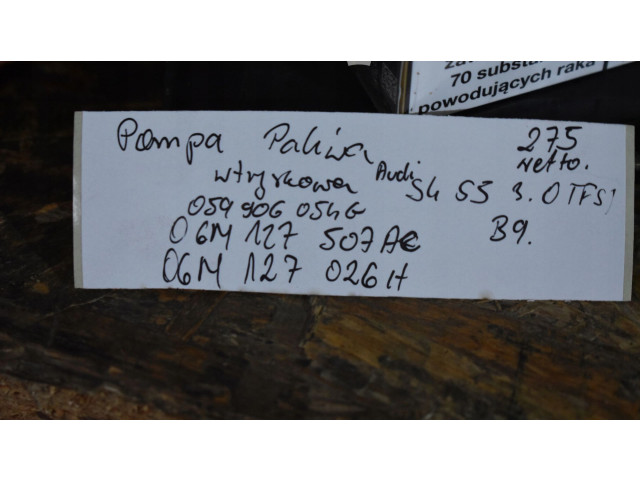 70 substan
powodujących raka
Pompa Paliwa 275
wtryskowa Audi netto.
S4 S5 3.0 TFSI
059 906 054G
06M 127 507 AC B9.
06M 127 026 H